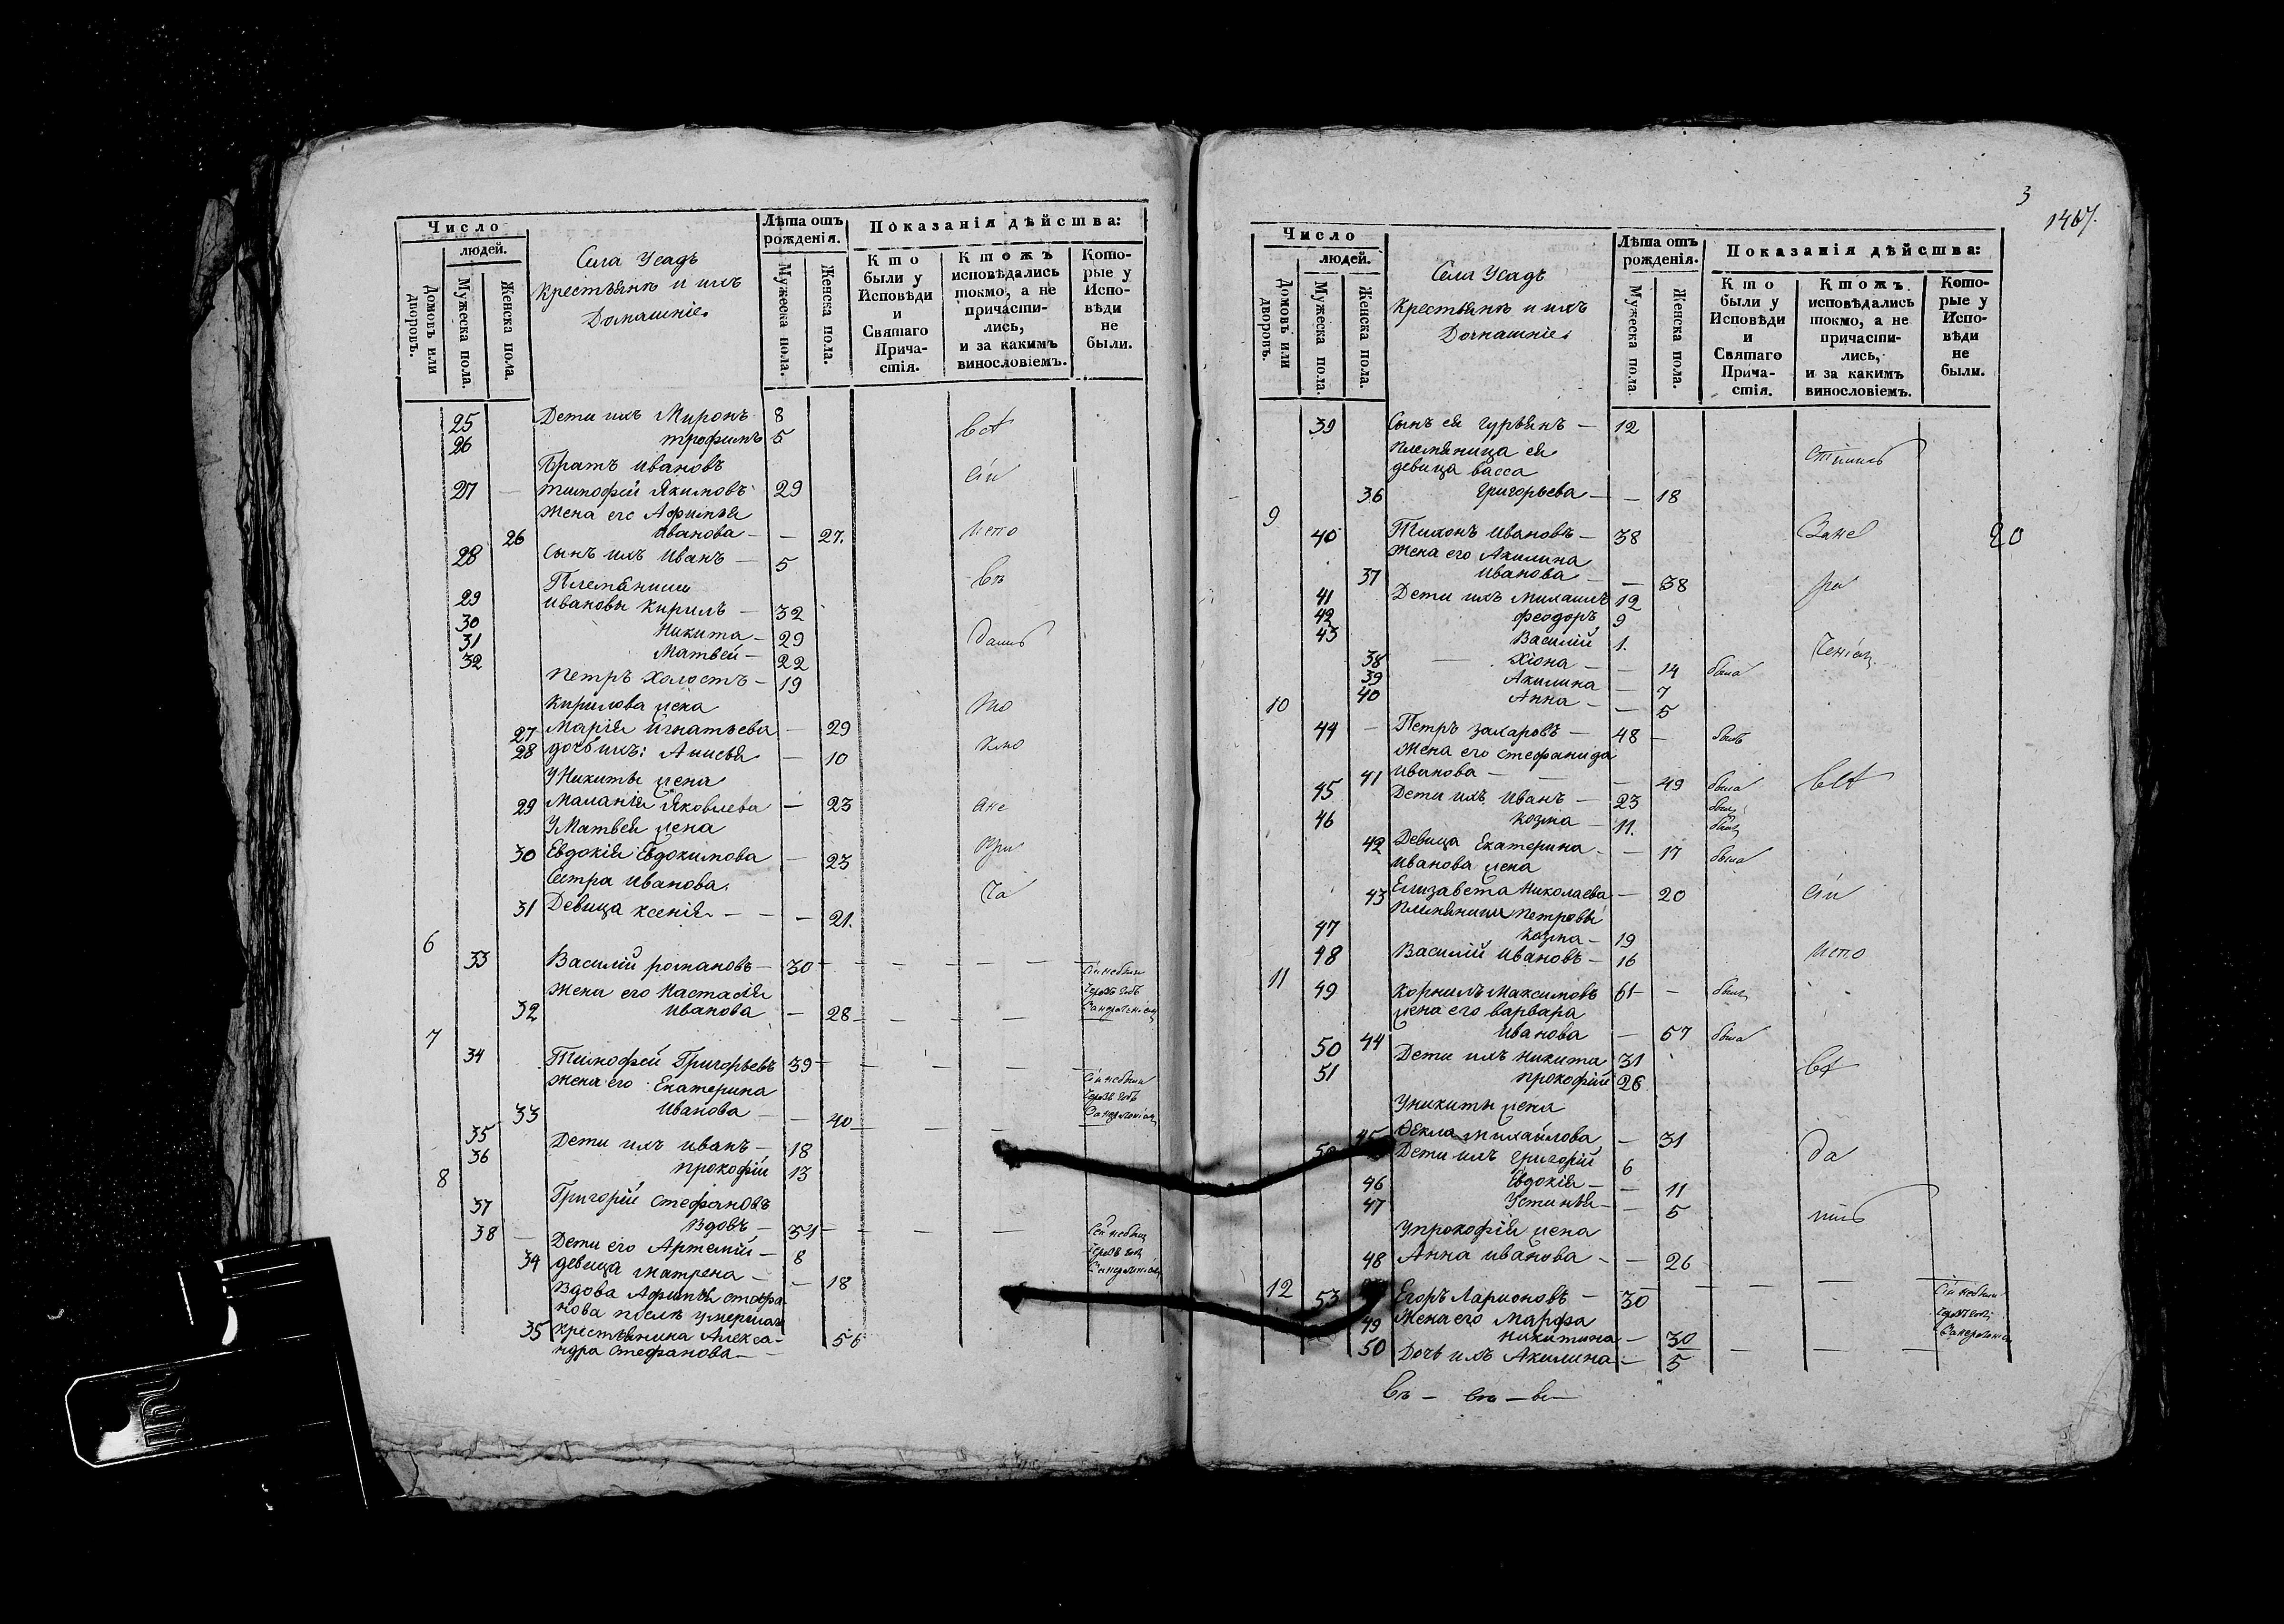 Число
людей.
Домовъ или дворовъ.
Мужеска пола.
Женска пола.
Села Усадъ
крестьянъ и ихъ
Домашніе
Лѣта отъ рожденія.
Мужеска пола.
Женска пола.
Показанія дѣйства:
Кто были у Исповѣди и Святаго Причастія.
Ктожъ исповѣдались токмо, а не причастились, и за какимъ винословіемъ.
Которые у Исповѣди не были.
25 Дети ихъ Миронъ 8
26 трофимъ 5 всѣ
Братъ ивановъ
27 — тимофей Якимовъ 29 сіи
Жена его Афимья
26 иванова — — 27. испо
28 Сынъ ихъ Иванъ — 5
Племянники въ
29 ивановы кирилъ — 32
30 Никита — 29 дались
31 Матвей — 22
32 Петръ холостъ — 19
Кирилова жена то
27 Марія игнатьева — 29
28 дочь ихъ: Анисья — 10 кмо
У Никиты жена
29 Маланія Яковлева — 23 ане
У Матвея жена
30 Евдокія Евдокимова — 23 при
Сестра иванова ча
31 Девица ксенія — — — 21.
6
33 Василій романовъ — 30 — — — — — — сіи небыли
Жена его Настасия
32 иванова — 28 — — — —
7
34 Тимофей Григорьевъ 39 — — — — —
Жена его Екатерина сіи небыли
33 Иванова — — 40 — — —
35 Дети ихъ иванъ — 18
36 прокофій 13
8
37 Григорій стефановъ
вдовъ — 51 — — — —
38 — Дети его Артемій — 8
34 девица матрена — — 18
Вдова Афимья
нова послѣ умершаго
35 крестьянина Алекса-
ндра стефанова — — 56
3
1467.
Число
людей.
Домовъ или дворовъ.
Мужеска пола.
Женска пола.
Села Усадъ
крестьянъ и ихъ
Домашніе
Лѣта отъ рожденія.
Мужеска пола.
Женска пола.
Показанія дѣйства:
Кто были у Исповѣди и Святаго Причастія.
Ктожъ исповѣдались токмо, а не причастились, и за какимъ винословіемъ.
Которые у Исповѣди не были.
39 Сынъ ея гурьянъ — 12
племяница ея
девица васса
36 григорьева — — 18
9
40 Тихонъ ивановъ — 38 20
Жена его Акилина
37 иванова — — 38 ра
41 Дети ихъ михаилъ 12
42 феодоръ 9
43 Василій 1.
38 — хіона — — 14 была
39 Акилина — 7
40 Анна — — 5
10
44 — Петръ захаровъ — 48 — былъ
Жена его стефанида
41 иванова — — — 49 была всѣ
45 Дети ихъ иванъ — 23
46 козма — 11.
42 Девица Екатерина — — 17 была
иванова жена
43 Елизавета николаева — 20 сіи
племяники петровы
47 козма — 19
48 Василій ивановъ — 16 испо
11
49 корнилъ максимовъ 61 —
жена его варвара
44 иванова — 57 была
50 Дети ихъ никита 31 вѣ
51 прокофій 26
У никиты жена
45 Фекла михайлова — 31
Дети ихъ григорій 6 да
46 Евдокія — — 11
47 Устинья — — 5
У прокофія жена
48 Анна иванова — — 26
12
53 Егоръ Ларионовъ — 30 — — — — сіи небыли
49 Жена его Марфа
никитина — 30
50 Дочь ихъ Акилина — 5 — — —